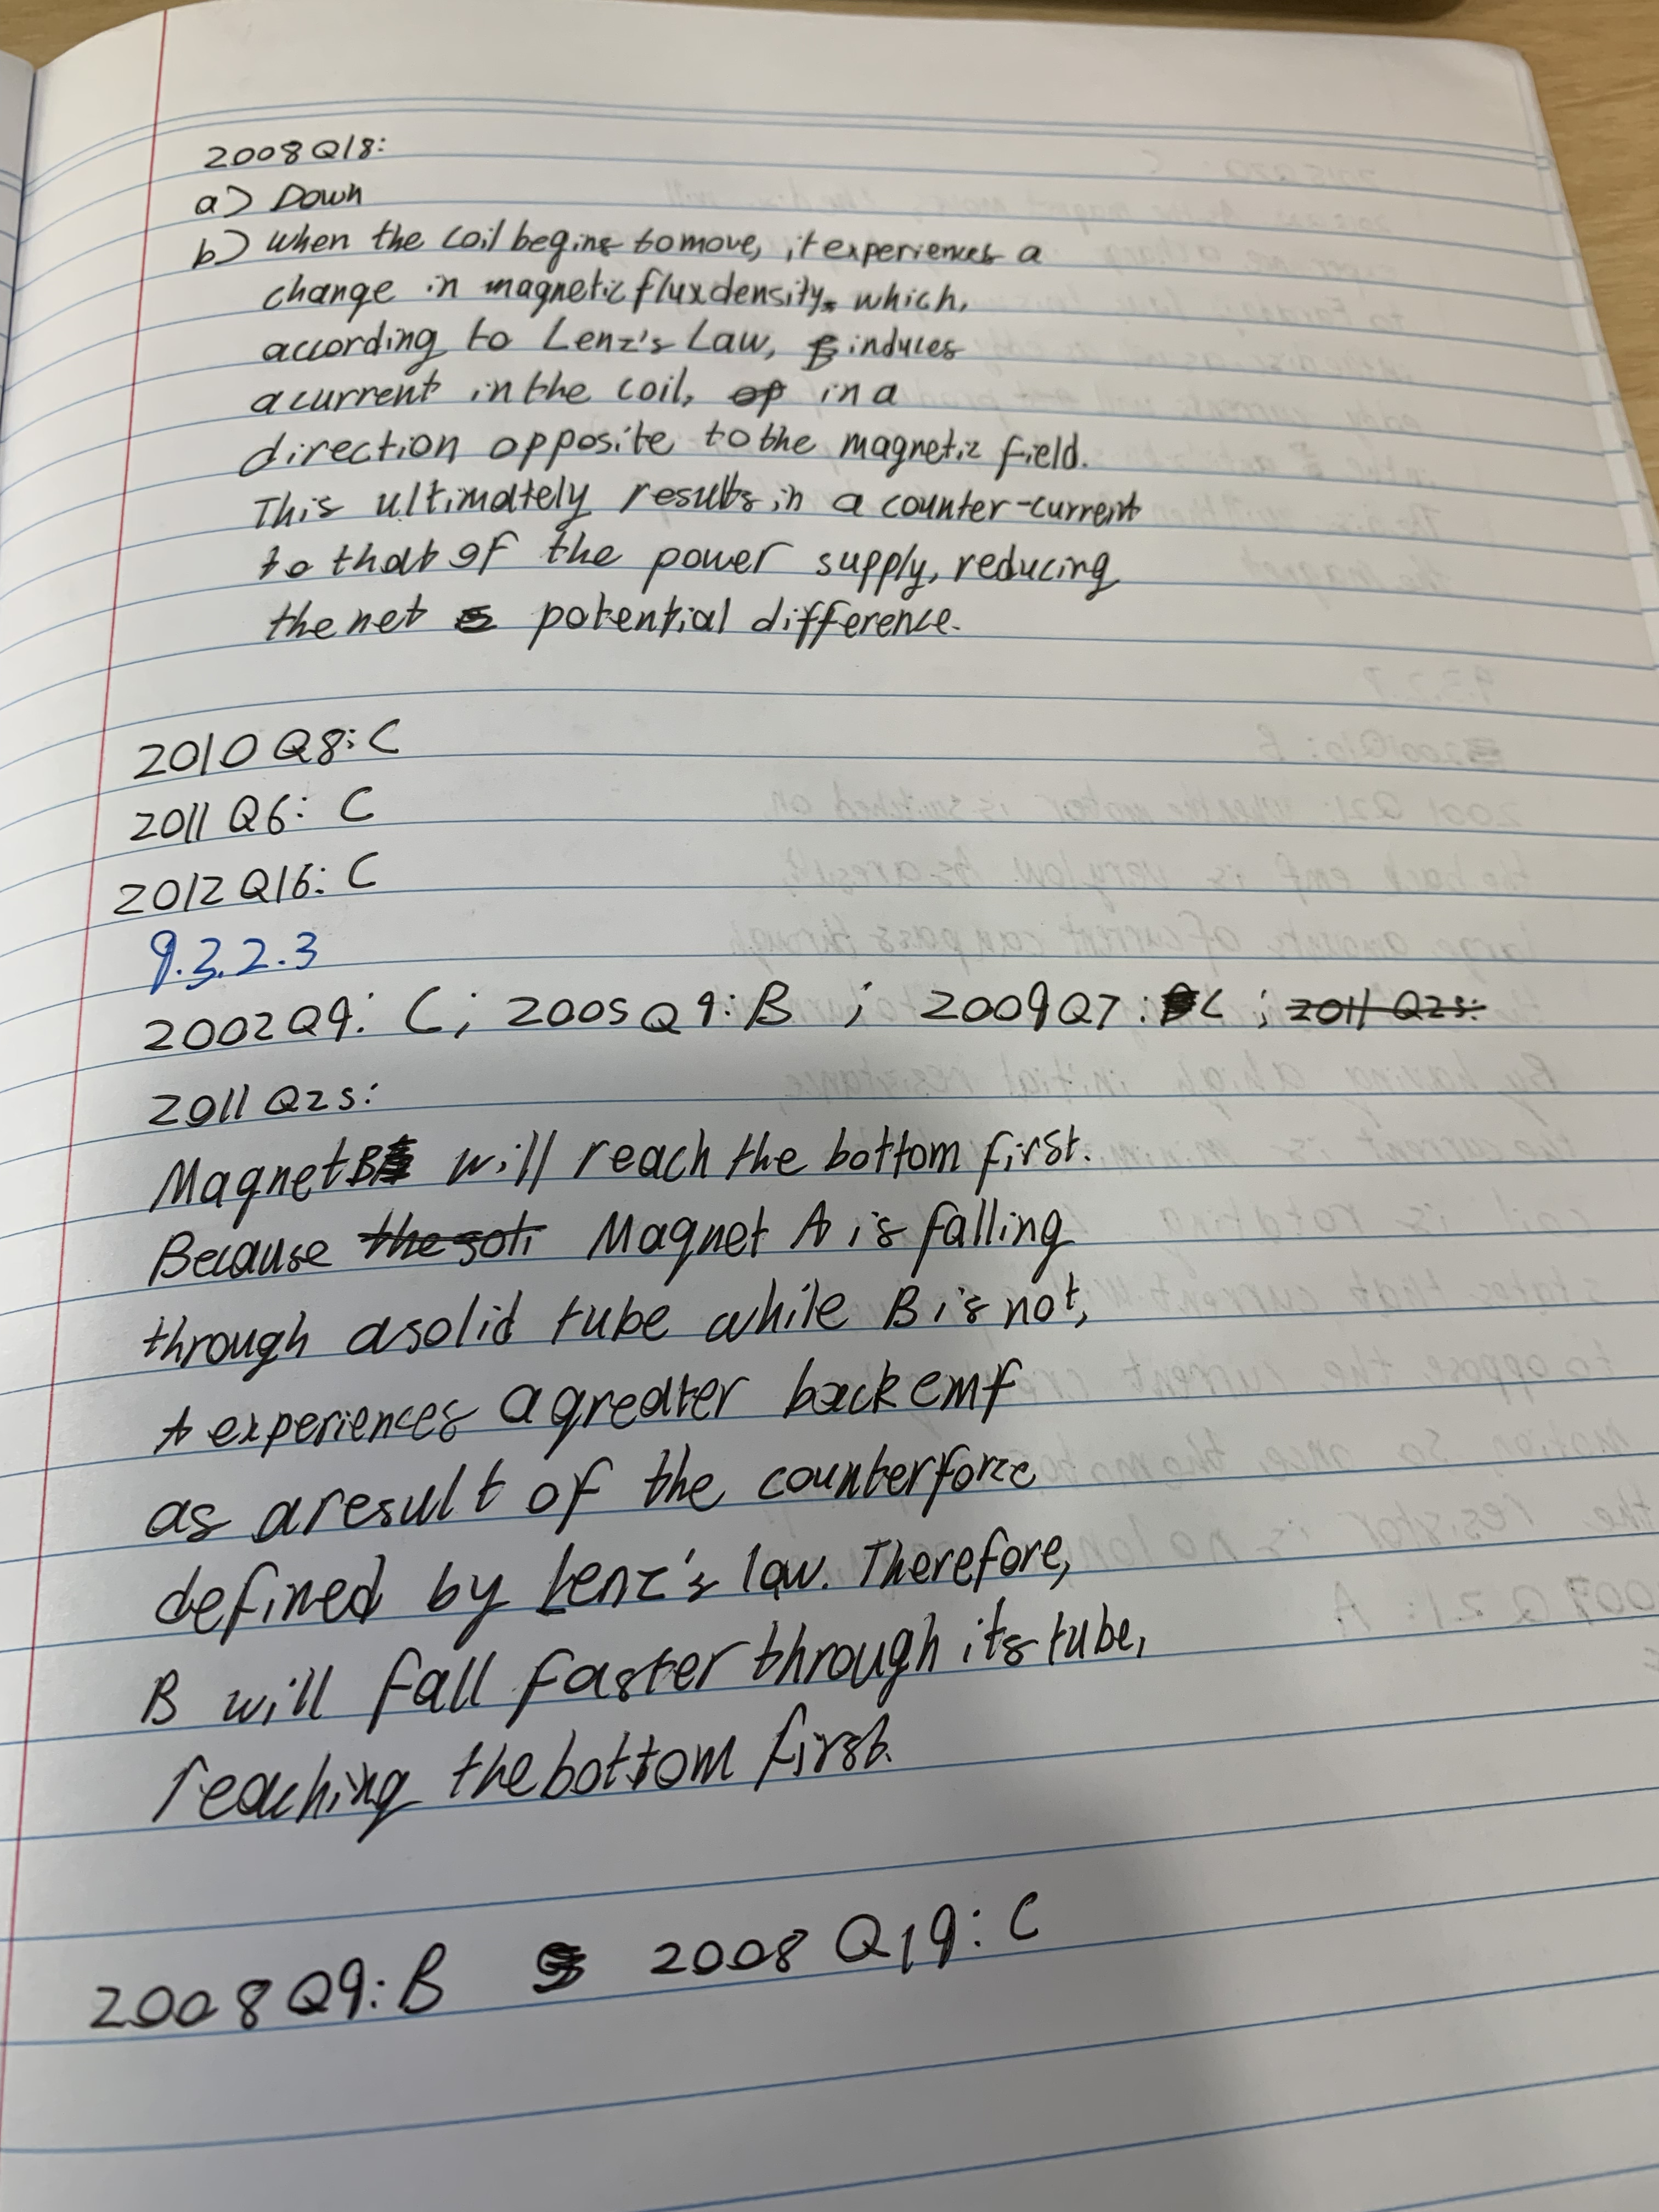 2008 Q18:
a) Down
b) When the coil begins to move, it experiences a
change in magnetic flux density, which,
according to Lenz's Law, induces
a current in the coil, in a
direction opposite to the magnetic field.
This ultimately results in a counter-current
to that of the power supply, reducing
the net potential difference.
2010 Q8: C
2011 Q6: C
2012 Q16: C
9.3.2.3
2002 Q9: C; 2005 Q9: B ; 2009 Q7: C ; 2011 Q25:
2011 Q25:
Magnet B will reach the bottom first.
Because Magnet A is falling
through a solid tube while B is not,
A experiences a greater back emf
as a result of the counterforce
defined by Lenz's law. Therefore,
B will fall faster through its tube,
reaching the bottom first.
2008 Q9: B 2008 Q19: C